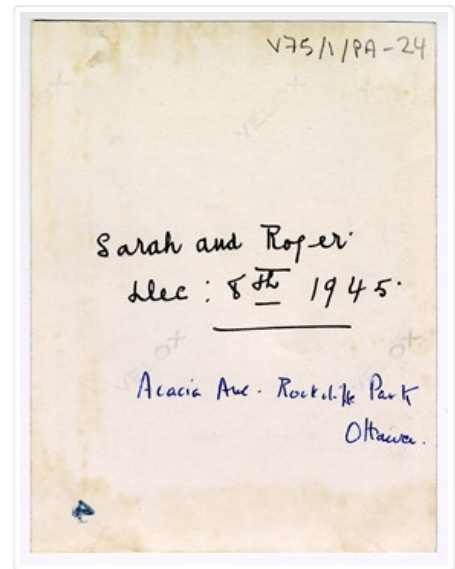 V75/1/PA-24
VELOX
Sarah and Roger
Dec: 8th 1945.
VELOX
Acacia Ave. Rockcliffe Park
Ottawa.